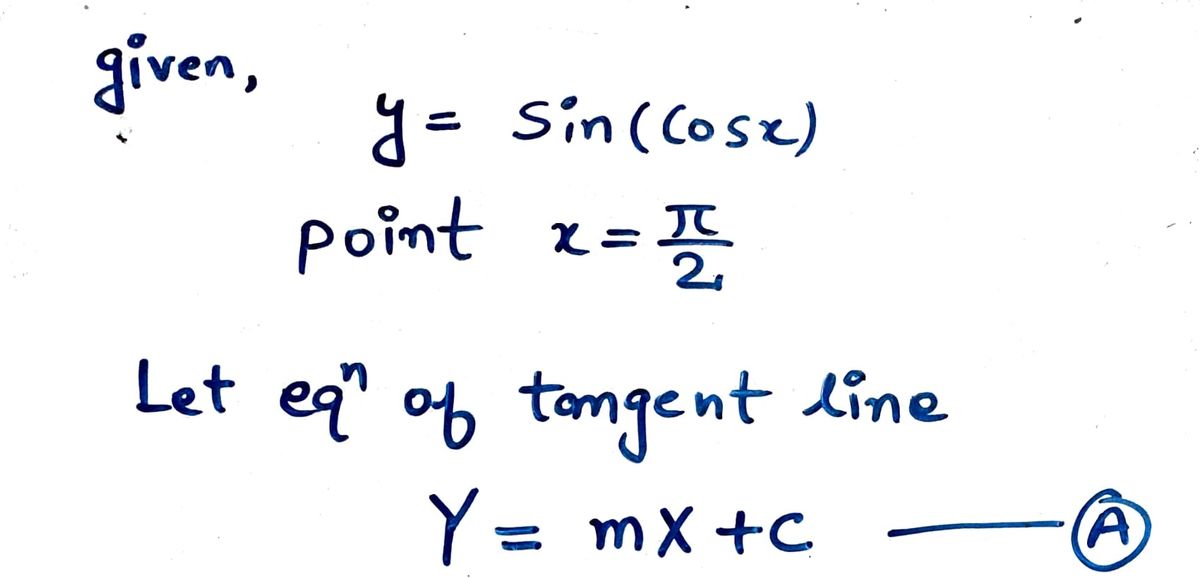 given,
y = Sin(Cosx)
point x = π/2
Let eqⁿ of tangent line
Y = mX + C —— Ⓐ